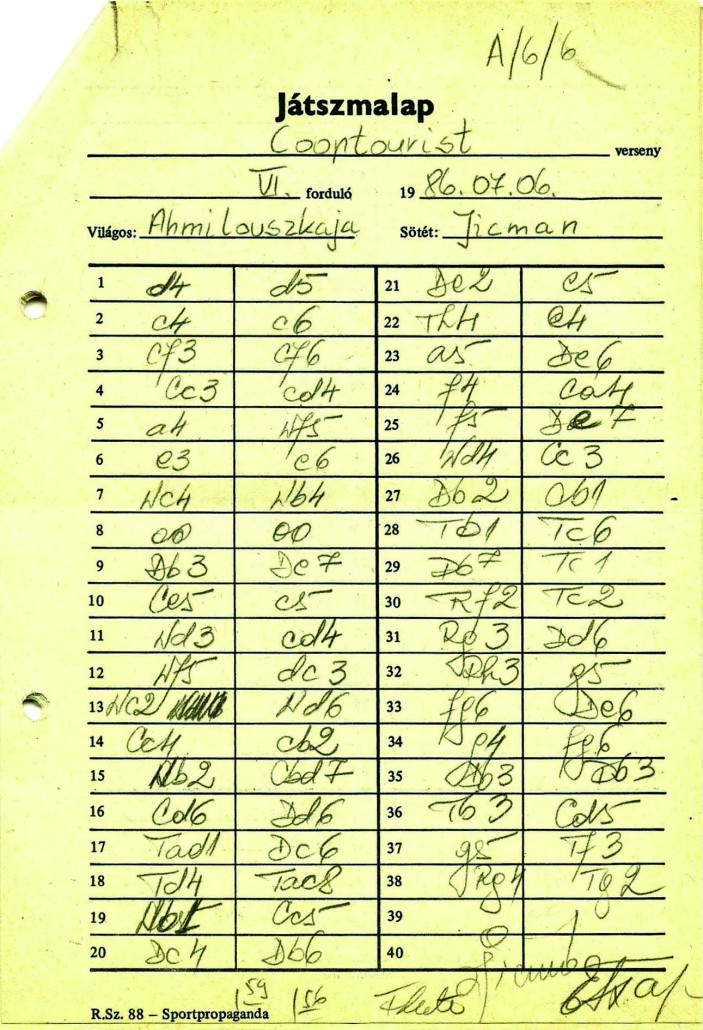 A/6/6
Játszmalap
Cooptourist verseny
VI. forduló 1986.07.06.
Világos: Ahmilouszkaja Sötét: Jicman
1 d4 d5 21 De2 e5
2 c4 c6 22 Th4 e4
3 Cf3 Cf6 23 a5 De6
4 Cc3 cd4 24 f4 Ca4
5 a4 Nf5 25 f5 De7
6 e3 e6 26 Nd4 Cc3
7 Nc4 Nb4 27 Db2 Cb1
8 00 00 28 Tb1 Tc6
9 Db3 De7 29 Db7 Tc1
10 Ce5 c5 30 Rf2 Tc2
11 Nd3 cd4 31 Rg3 Dd6
12 Nf5 dc3 32 Rh3 g5
13 Nc2 Nd6 33 fg6 De6
14 Cc4 cb2 34 g4 fg6
15 Nb2 Cbd7 35 Db3 Db3
16 Cd6 Dd6 36 Tb3 Cd5
17 Tad1 Dc6 37 g5 Tf3
18 Td4 Tac8 38 Rg4 Tg2
19 Nb1 Cc5 39
20 Dc4 Db6 40
0 1
1 59 1 56
R.Sz. 88 – Sportpropaganda